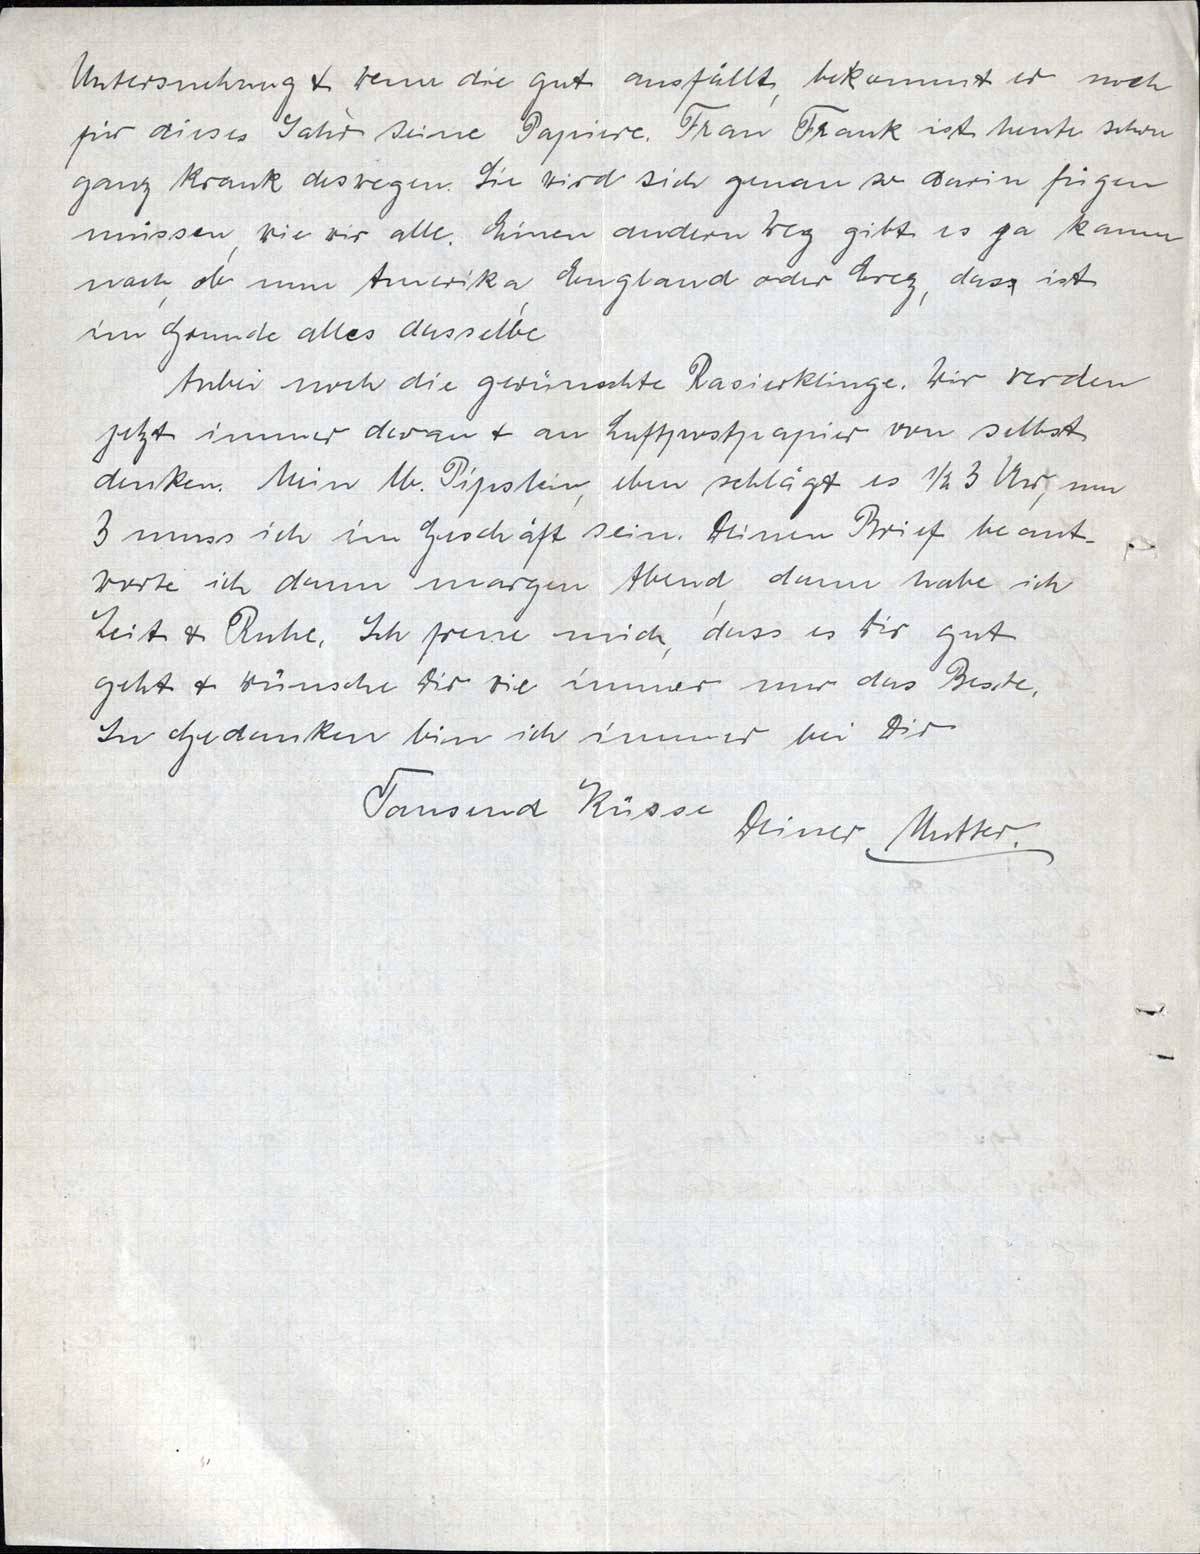 Untersuchung & wenn die gut ausfällt, bekommt er noch
für dieses Jahr seine Papiere. Frau Frank ist heute schon
ganz krank deswegen. Sie wird sich genau so darin fügen
müssen, wie wir alle. Einen andern Weg gibt es ja kaum
noch, ob nun Amerika, England oder Erez, dass ist
im Grunde alles dasselbe
Anbei noch die gewünschte Rasierklinge. Wir werden
jetzt immer daran & an Luftpostpapier von selbst
denken. Mein lb. Pipslein, eben schlägt es 1/2 3 Uhr, um
3 muss ich im Geschäft sein. Deinen Brief beant-
worte ich dann morgen Abend, dann habe ich
Zeit & Ruhe. Ich freue mich, dass es Dir gut
geht & wünsche Dir wie immer nur das Beste.
In Gedanken bin ich immer bei Dir
Tausend Küsse
Deiner Mutter.